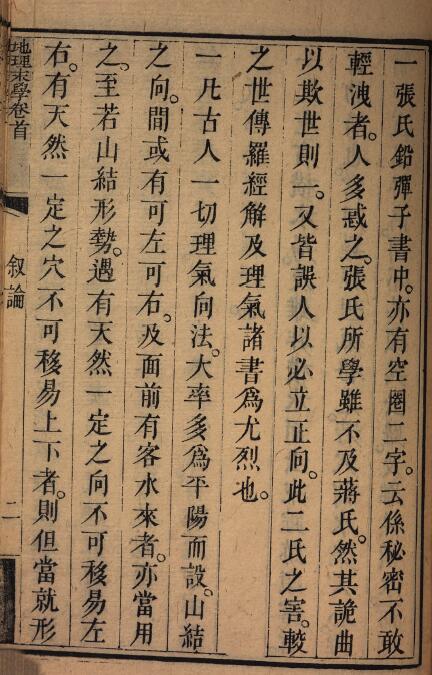 一張氏鉛彈子書中。亦有空圈二字。云係秘密不敢
輕洩者。人多惑之。張氏所學雖不及蔣氏。然其詭曲
以欺世則一。又皆誤人以必立正向。此二氏之害。較
之世傳羅經解及理氣諸書為尤烈也。
一凡古人一切理氣向法。大率多為平陽而設。山結
之向。間或有可左可右。及面前有客水來者。亦當用
之。至若山結形勢。遇有天然一定之向不可移易左
右。有天然一定之穴不可移易上下者。則但當就形
地理末學卷首
叙論
二